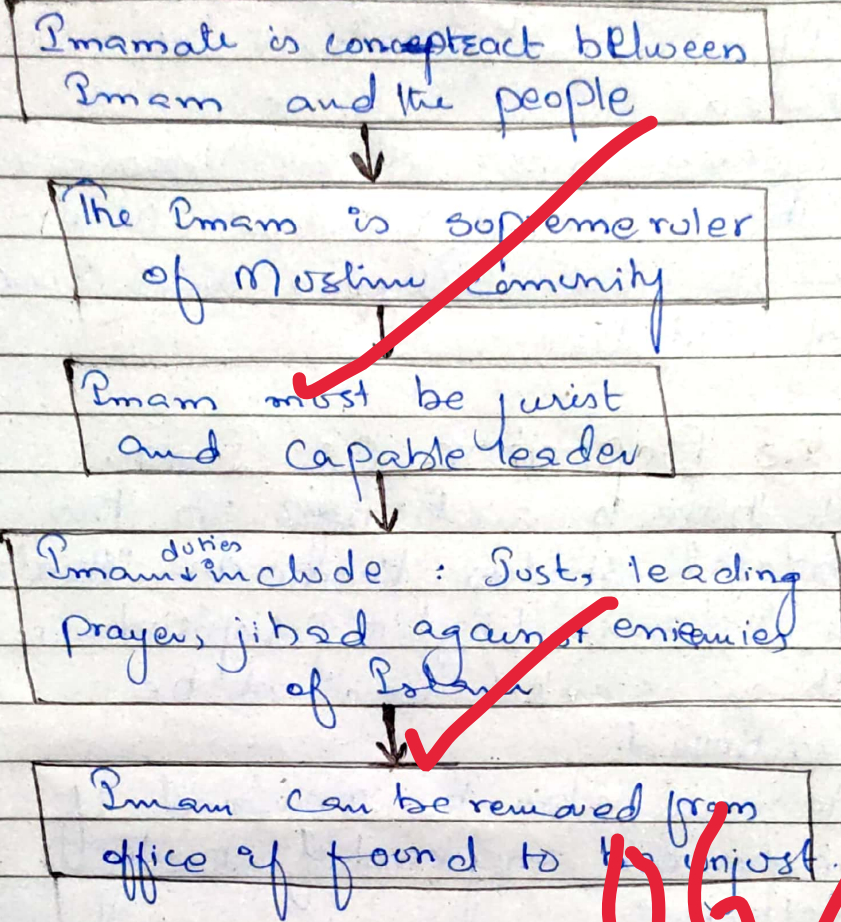 Imamate is conceptract between
Imam and the people
The Imam is supreme ruler
of Muslim Comunity
Imam must be jurist
and capable leader
duties
Imam include : Just, leading
prayer, jihad against eniemies
of Islam
Imam can be removed from
office if found to be unjust.
06